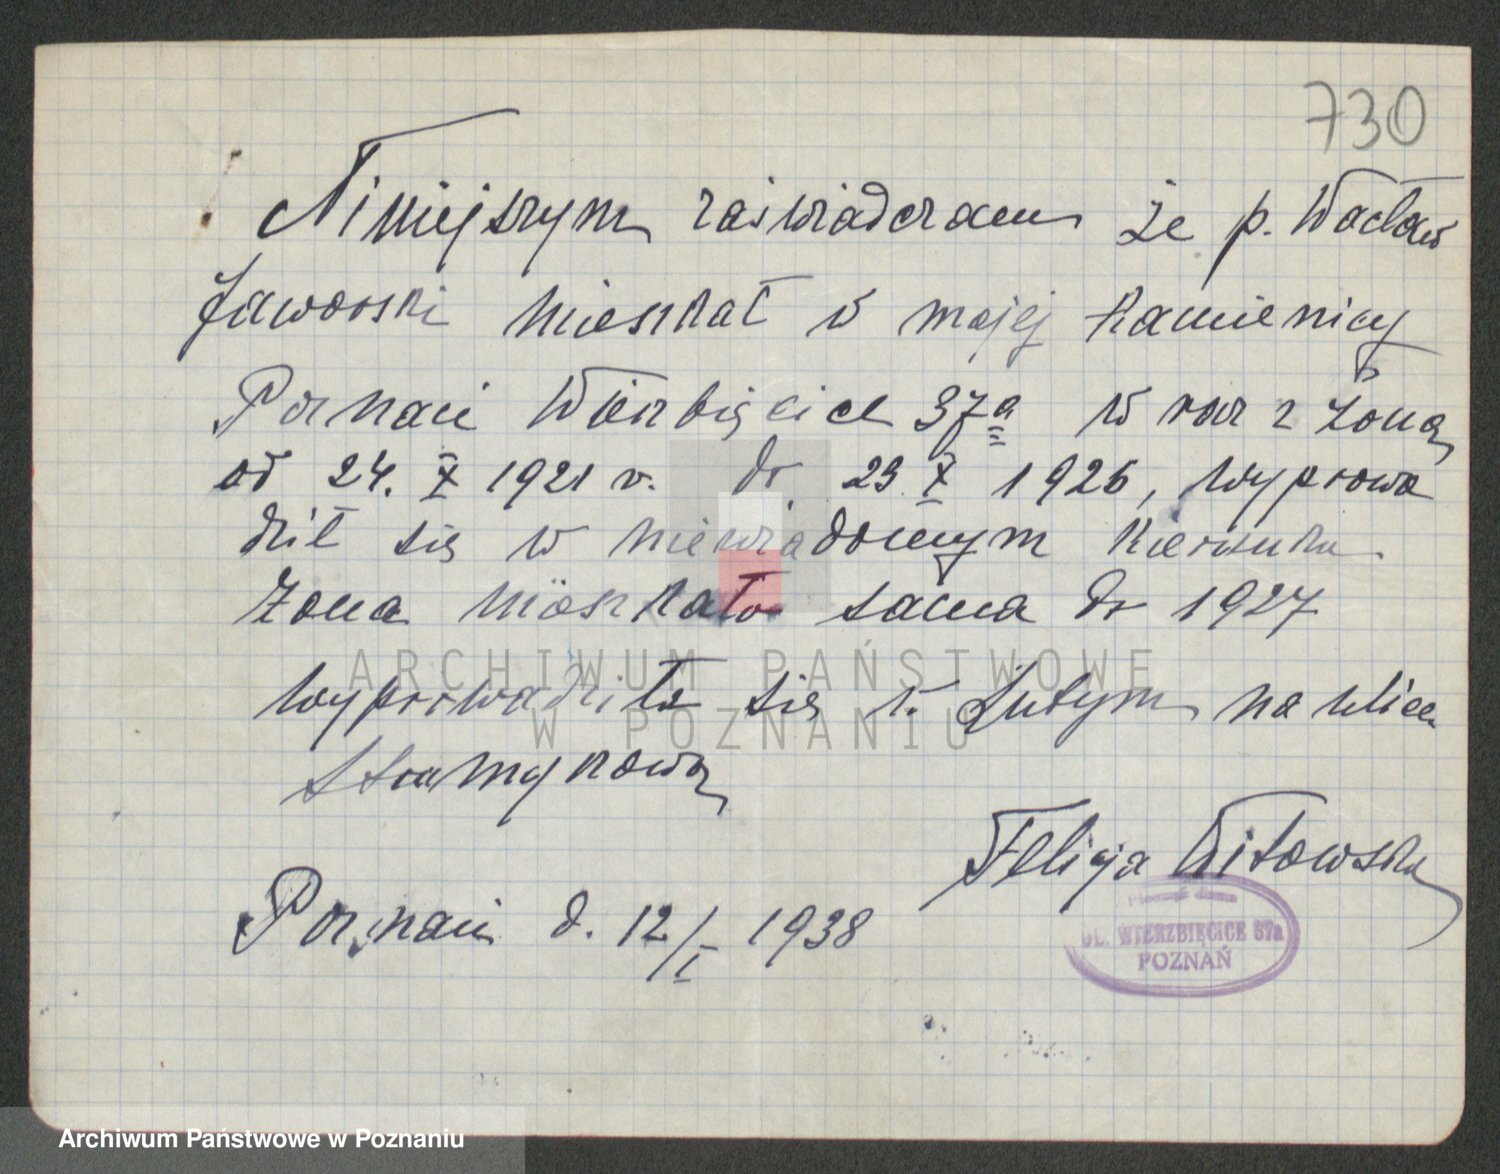 730
Niniejszym zaświadczam że p. Wacław
Jaworski mieszkał w mojej kamienicy
Poznań Wierzbięcice 37a w raz z żoną
od 24. X 1921 r. do 23 X 1926, wyprowa
dził się w niewiadomym kierunku.
Żona mieszkała sama do 1927
wyprowadziła się w Lutym na ulicę
Strumykową
Felicja Witowska
Poznań d. 12/I 1938
UL. WIERZBIĘCICE 37a
POZNAŃ
ARCHIWUM PAŃSTWOWE
W POZNANIU
Archiwum Państwowe w Poznaniu